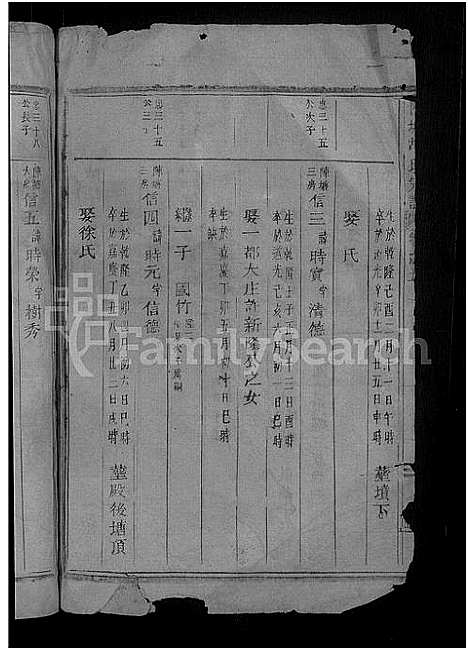 生於乾隆己酉二月十一日午時
卒於道光辛卯十二月廿五日申時 葬墳下
娶 氏
忠三十五公次子
陣塘三房信三諱時實字清德
生於乾隆壬子正月十二日酉時
卒於道光己亥六月初一日辰時
娶一都大庄許新隆公之女
生於嘉慶丁卯五月初十日巳時
卒缺
繼一子 國竹
忠三十五公三子
陣塘三房信四諱時元字信德
生於乾隆乙卯七月初六日巳時
卒於嘉慶丁丑八月廿二日戌時 葬殿後塘頂
娶徐氏
忠三十八公長子
陣塘大房信五諱時榮字樹秀
FamilySearch